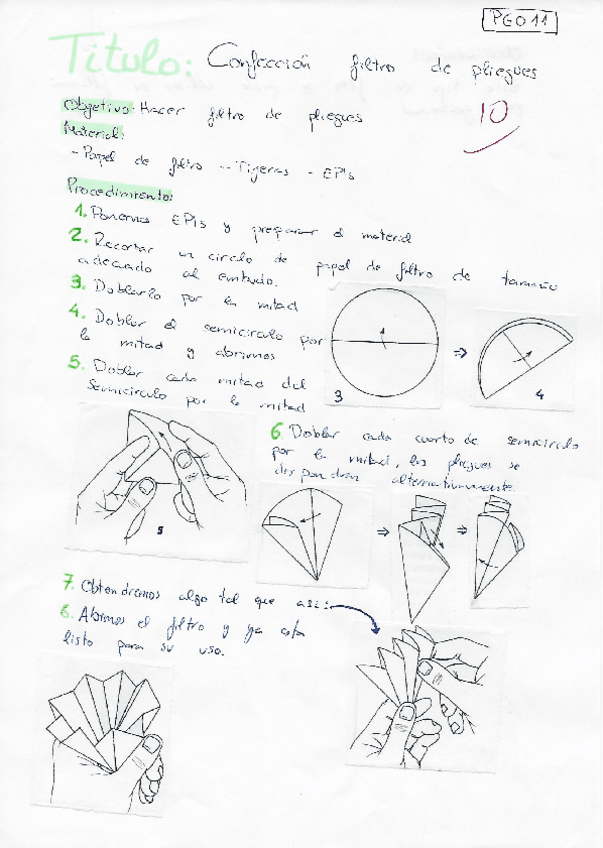 PGO11
Título: Confección filtro de pliegues
10
Objetivo: Hacer filtro de pliegues
Material:
- Papel de filtro - Tijeras - EPIs
Procedimiento:
1. Ponernos EPIs y preparar el material
2. Recortar un circulo de papel de filtro de tamaño
adecuado al embudo.
3. Doblarlo por la mitad
4. Doblar el semicirculo por
la mitad y abrimos
5. Doblar cada mitad del
semicirculo por la mitad
3
⇒
4
5
6. Doblar cada cuarto de semicirculo
por la mitad, los pliegues se
dispondran alternativamente.
⇒ ⇒
7. Obtendremos algo tal que asi:
8. Abrimos el filtro y ya esta
listo para su uso.